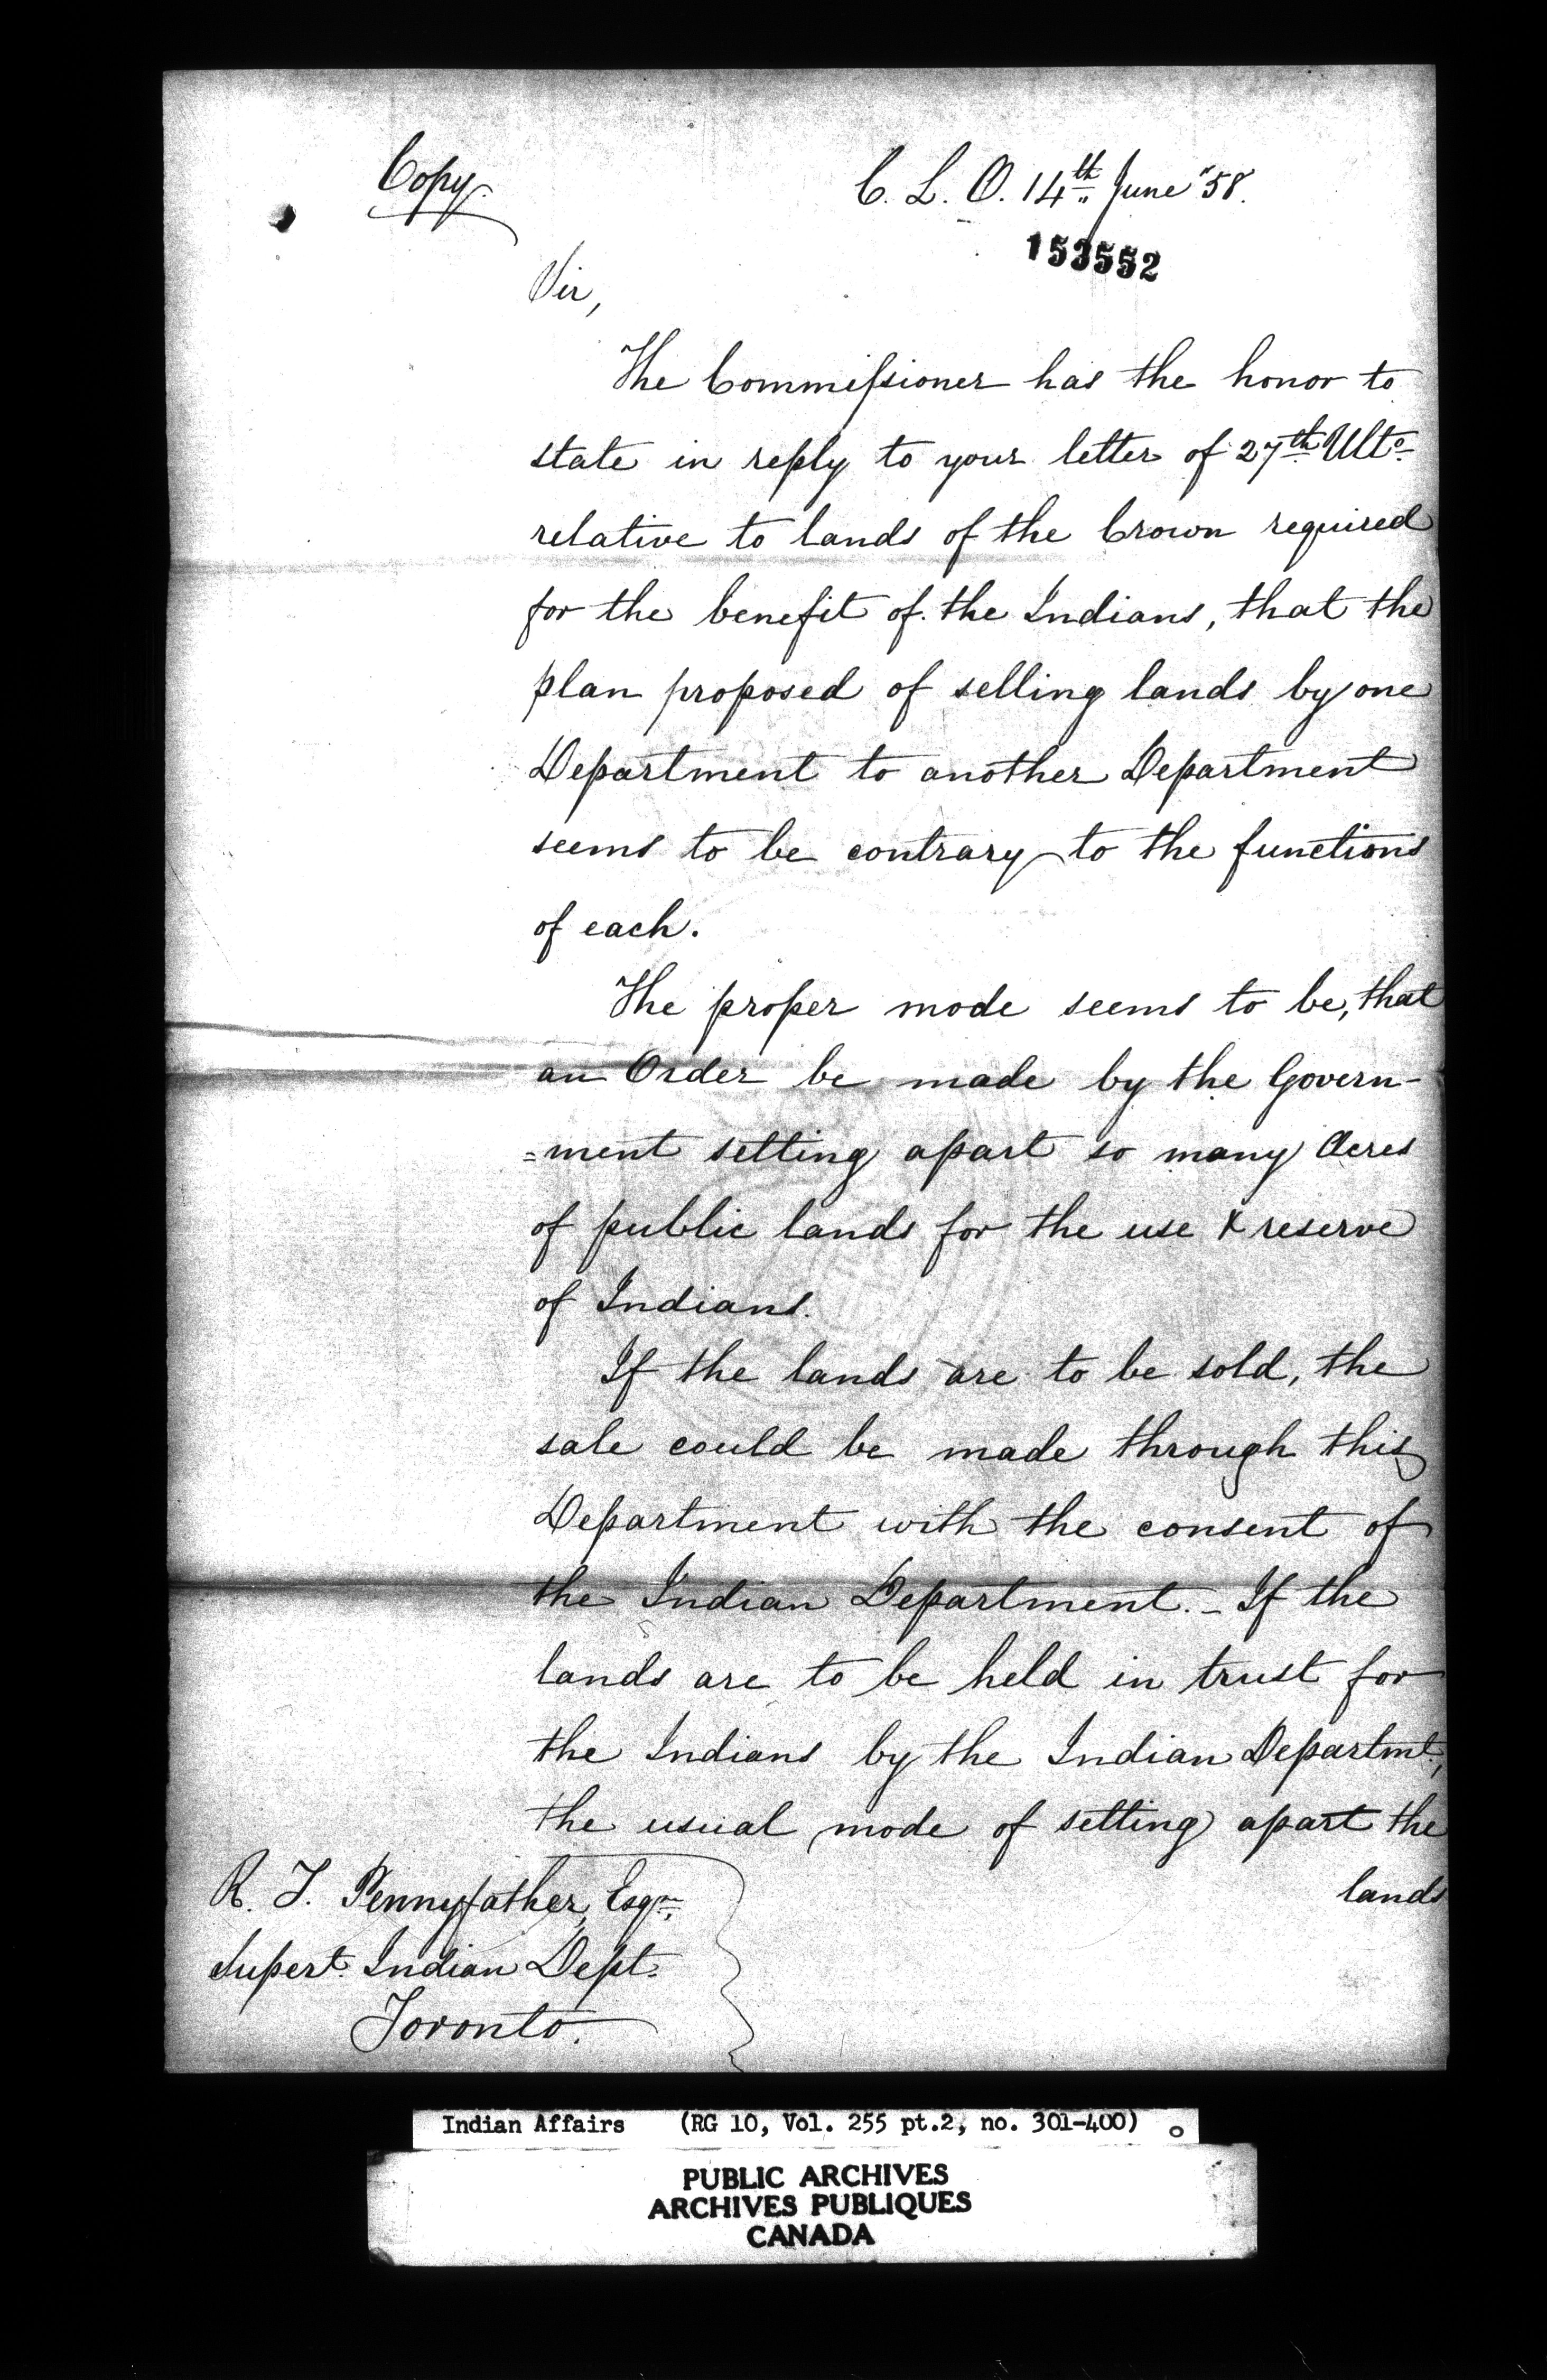 Copy.
C. L. O. 14th June '58.
153552
Sir,
The Commissioner has the honor to
state in reply to your letter of 27th Ulto
relative to lands of the Crown required
for the benefit of the Indians, that the
plan proposed of selling lands by one
Department to another Department
seems to be contrary to the functions
of each.
The proper mode seems to be, that
an Order be made by the Govern-
=ment setting apart so many Acres
of public lands for the use & reserve
of Indians.
If the lands are to be sold, the
sale could be made through this
Department with the consent of
the Indian Department. - If the
lands are to be held in trust for
the Indians by the Indian Departmt.,
the usual mode of setting apart the
lands
R. T. Pennyfather, Esqre.
Supert. Indian Dept.
Toronto.
Indian Affairs (RG 10, Vol. 255 pt.2, no. 301-400)
PUBLIC ARCHIVES
ARCHIVES PUBLIQUES
CANADA